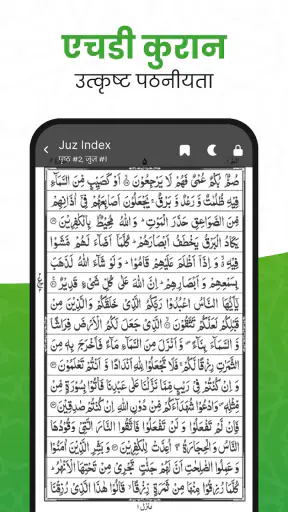 एचडी कुरान
उत्कृष्ट पठनीयता
Juz Index
पृष्ठ #2, जुज़ #1
صُمٌّۢ بُكْمٌ عُمْیٌ فَهُمْ لَا یَرْجِعُوْنَ ۙ اَوْ كَصَیِّبٍ مِّنَ السَّمَآءِ
فِیْهِ ظُلُمٰتٌ وَّ رَعْدٌ وَّ بَرْقٌ ۚ یَجْعَلُوْنَ اَصَابِعَهُمْ فِیْۤ اٰذَانِهِمْ
مِّنَ الصَّوَاعِقِ حَذَرَ الْمَوْتِ ؕ وَ اللّٰهُ مُحِیْطٌۢ بِالْكٰفِرِیْنَ
یَكَادُ الْبَرْقُ یَخْطَفُ اَبْصَارَهُمْ ؕ كُلَّمَاۤ اَضَآءَ لَهُمْ مَّشَوْا
فِیْهِ ۙ وَ اِذَاۤ اَظْلَمَ عَلَیْهِمْ قَامُوْا ؕ وَ لَوْ شَآءَ اللّٰهُ لَذَهَبَ
بِسَمْعِهِمْ وَ اَبْصَارِهِمْ ؕ اِنَّ اللّٰهَ عَلٰی كُلِّ شَیْءٍ قَدِیْرٌ
یٰۤاَیُّهَا النَّاسُ اعْبُدُوْا رَبَّكُمُ الَّذِیْ خَلَقَكُمْ وَ الَّذِیْنَ مِنْ
قَبْلِكُمْ لَعَلَّكُمْ تَتَّقُوْنَ ۙ الَّذِیْ جَعَلَ لَكُمُ الْاَرْضَ فِرَاشًا
وَّ السَّمَآءَ بِنَآءً ۪ وَّ اَنْزَلَ مِنَ السَّمَآءِ مَآءً فَاَخْرَجَ بِهٖ مِنَ
الثَّمَرٰتِ رِزْقًا لَّكُمْ ۚ فَلَا تَجْعَلُوْا لِلّٰهِ اَنْدَادًا وَّ اَنْتُمْ تَعْلَمُوْنَ
وَ اِنْ كُنْتُمْ فِیْ رَیْبٍ مِّمَّا نَزَّلْنَا عَلٰی عَبْدِنَا فَاْتُوْا بِسُوْرَةٍ مِّنْ
مِّثْلِهٖ ۪ وَ ادْعُوْا شُهَدَآءَكُمْ مِّنْ دُوْنِ اللّٰهِ اِنْ كُنْتُمْ صٰدِقِیْنَ
فَاِنْ لَّمْ تَفْعَلُوْا وَ لَنْ تَفْعَلُوْا فَاتَّقُوا النَّارَ الَّتِیْ وَ قُوْدُهَا
النَّاسُ وَ الْحِجَارَةُ ۖۚ اُعِدَّتْ لِلْكٰفِرِیْنَ وَ بَشِّرِ الَّذِیْنَ اٰمَنُوْا
وَ عَمِلُوا الصّٰلِحٰتِ اَنَّ لَهُمْ جَنّٰتٍ تَجْرِیْ مِنْ تَحْتِهَا الْاَنْهٰرُ ؕ
كُلَّمَا رُزِقُوْا مِنْهَا مِنْ ثَمَرَةٍ رِّزْقًا ۙ قَالُوْا هٰذَا الَّذِیْ رُزِقْنَا